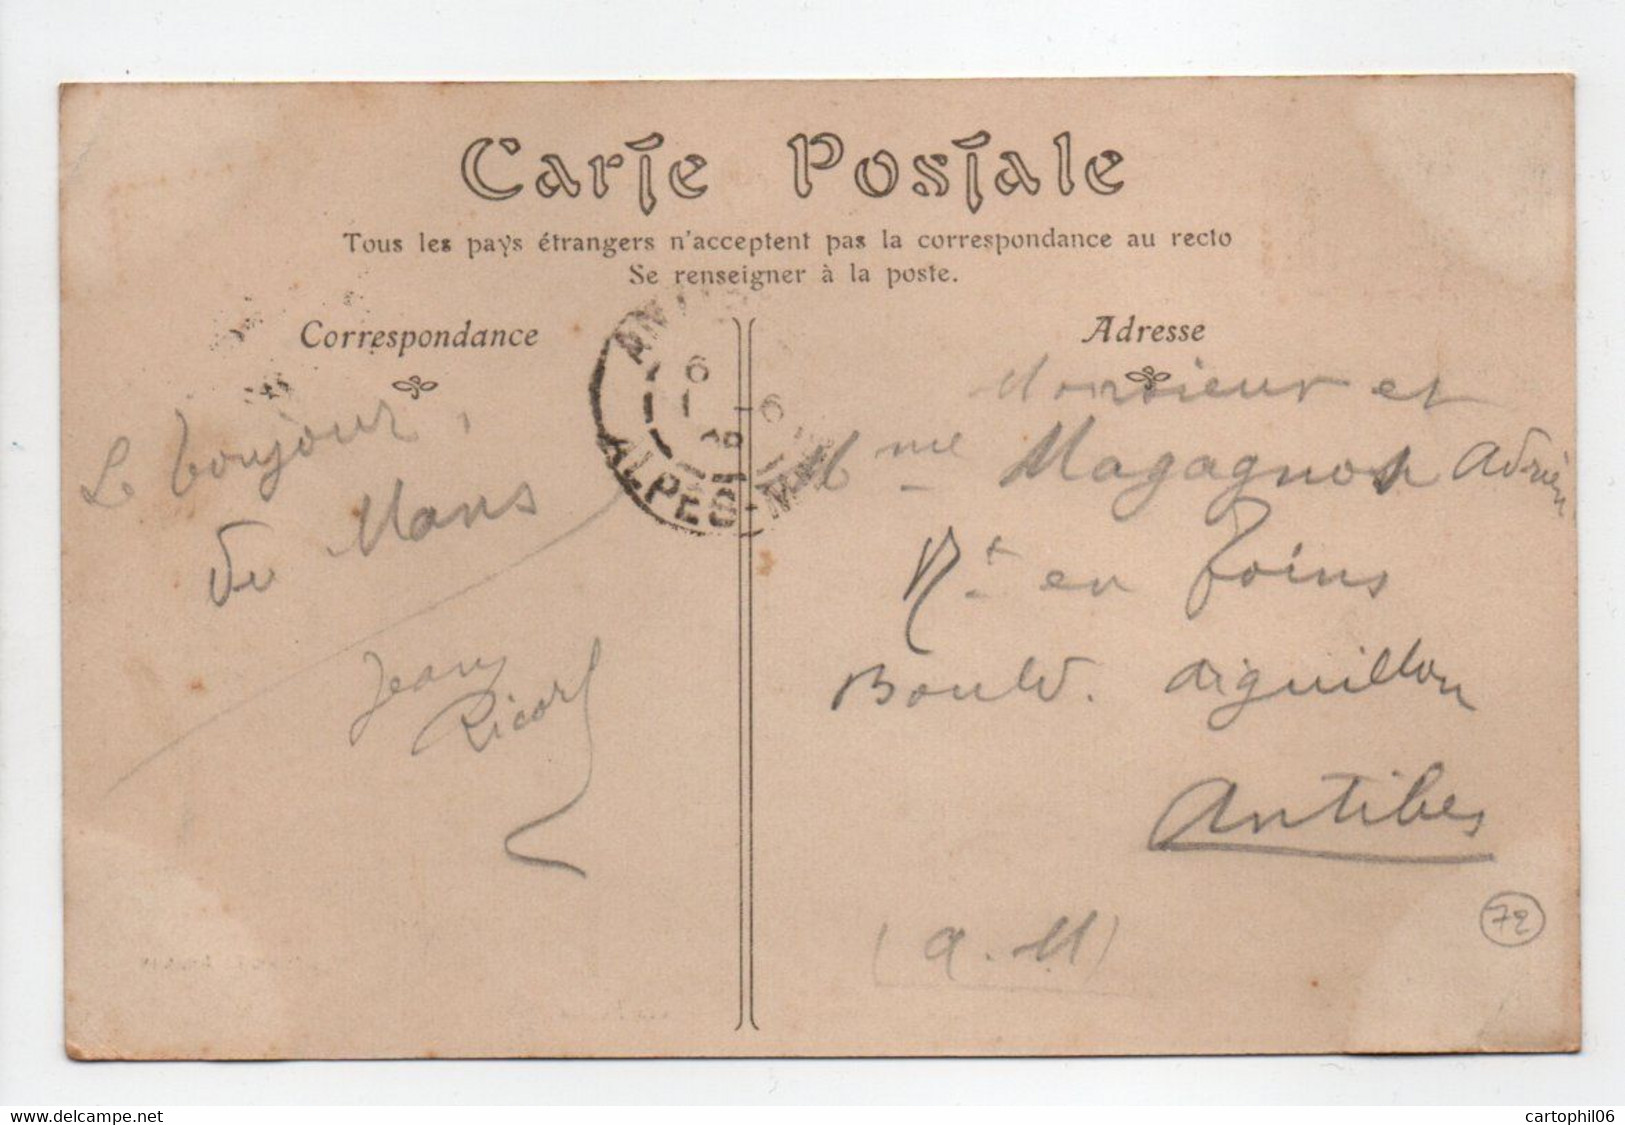 Carte Postale
Tous les pays étrangers n'acceptent pas la correspondance au recto
Se renseigner à la poste.
Correspondance
Adresse
Le bonjour,
du Mans
Jean
Ricord
ALPES-M
Monsieur et
Mme Magagnosc Adrien
Nt en Foins
Bould. Aiguillon
Antibes
(A. M)
72
www.delcampe.net
cartophil06